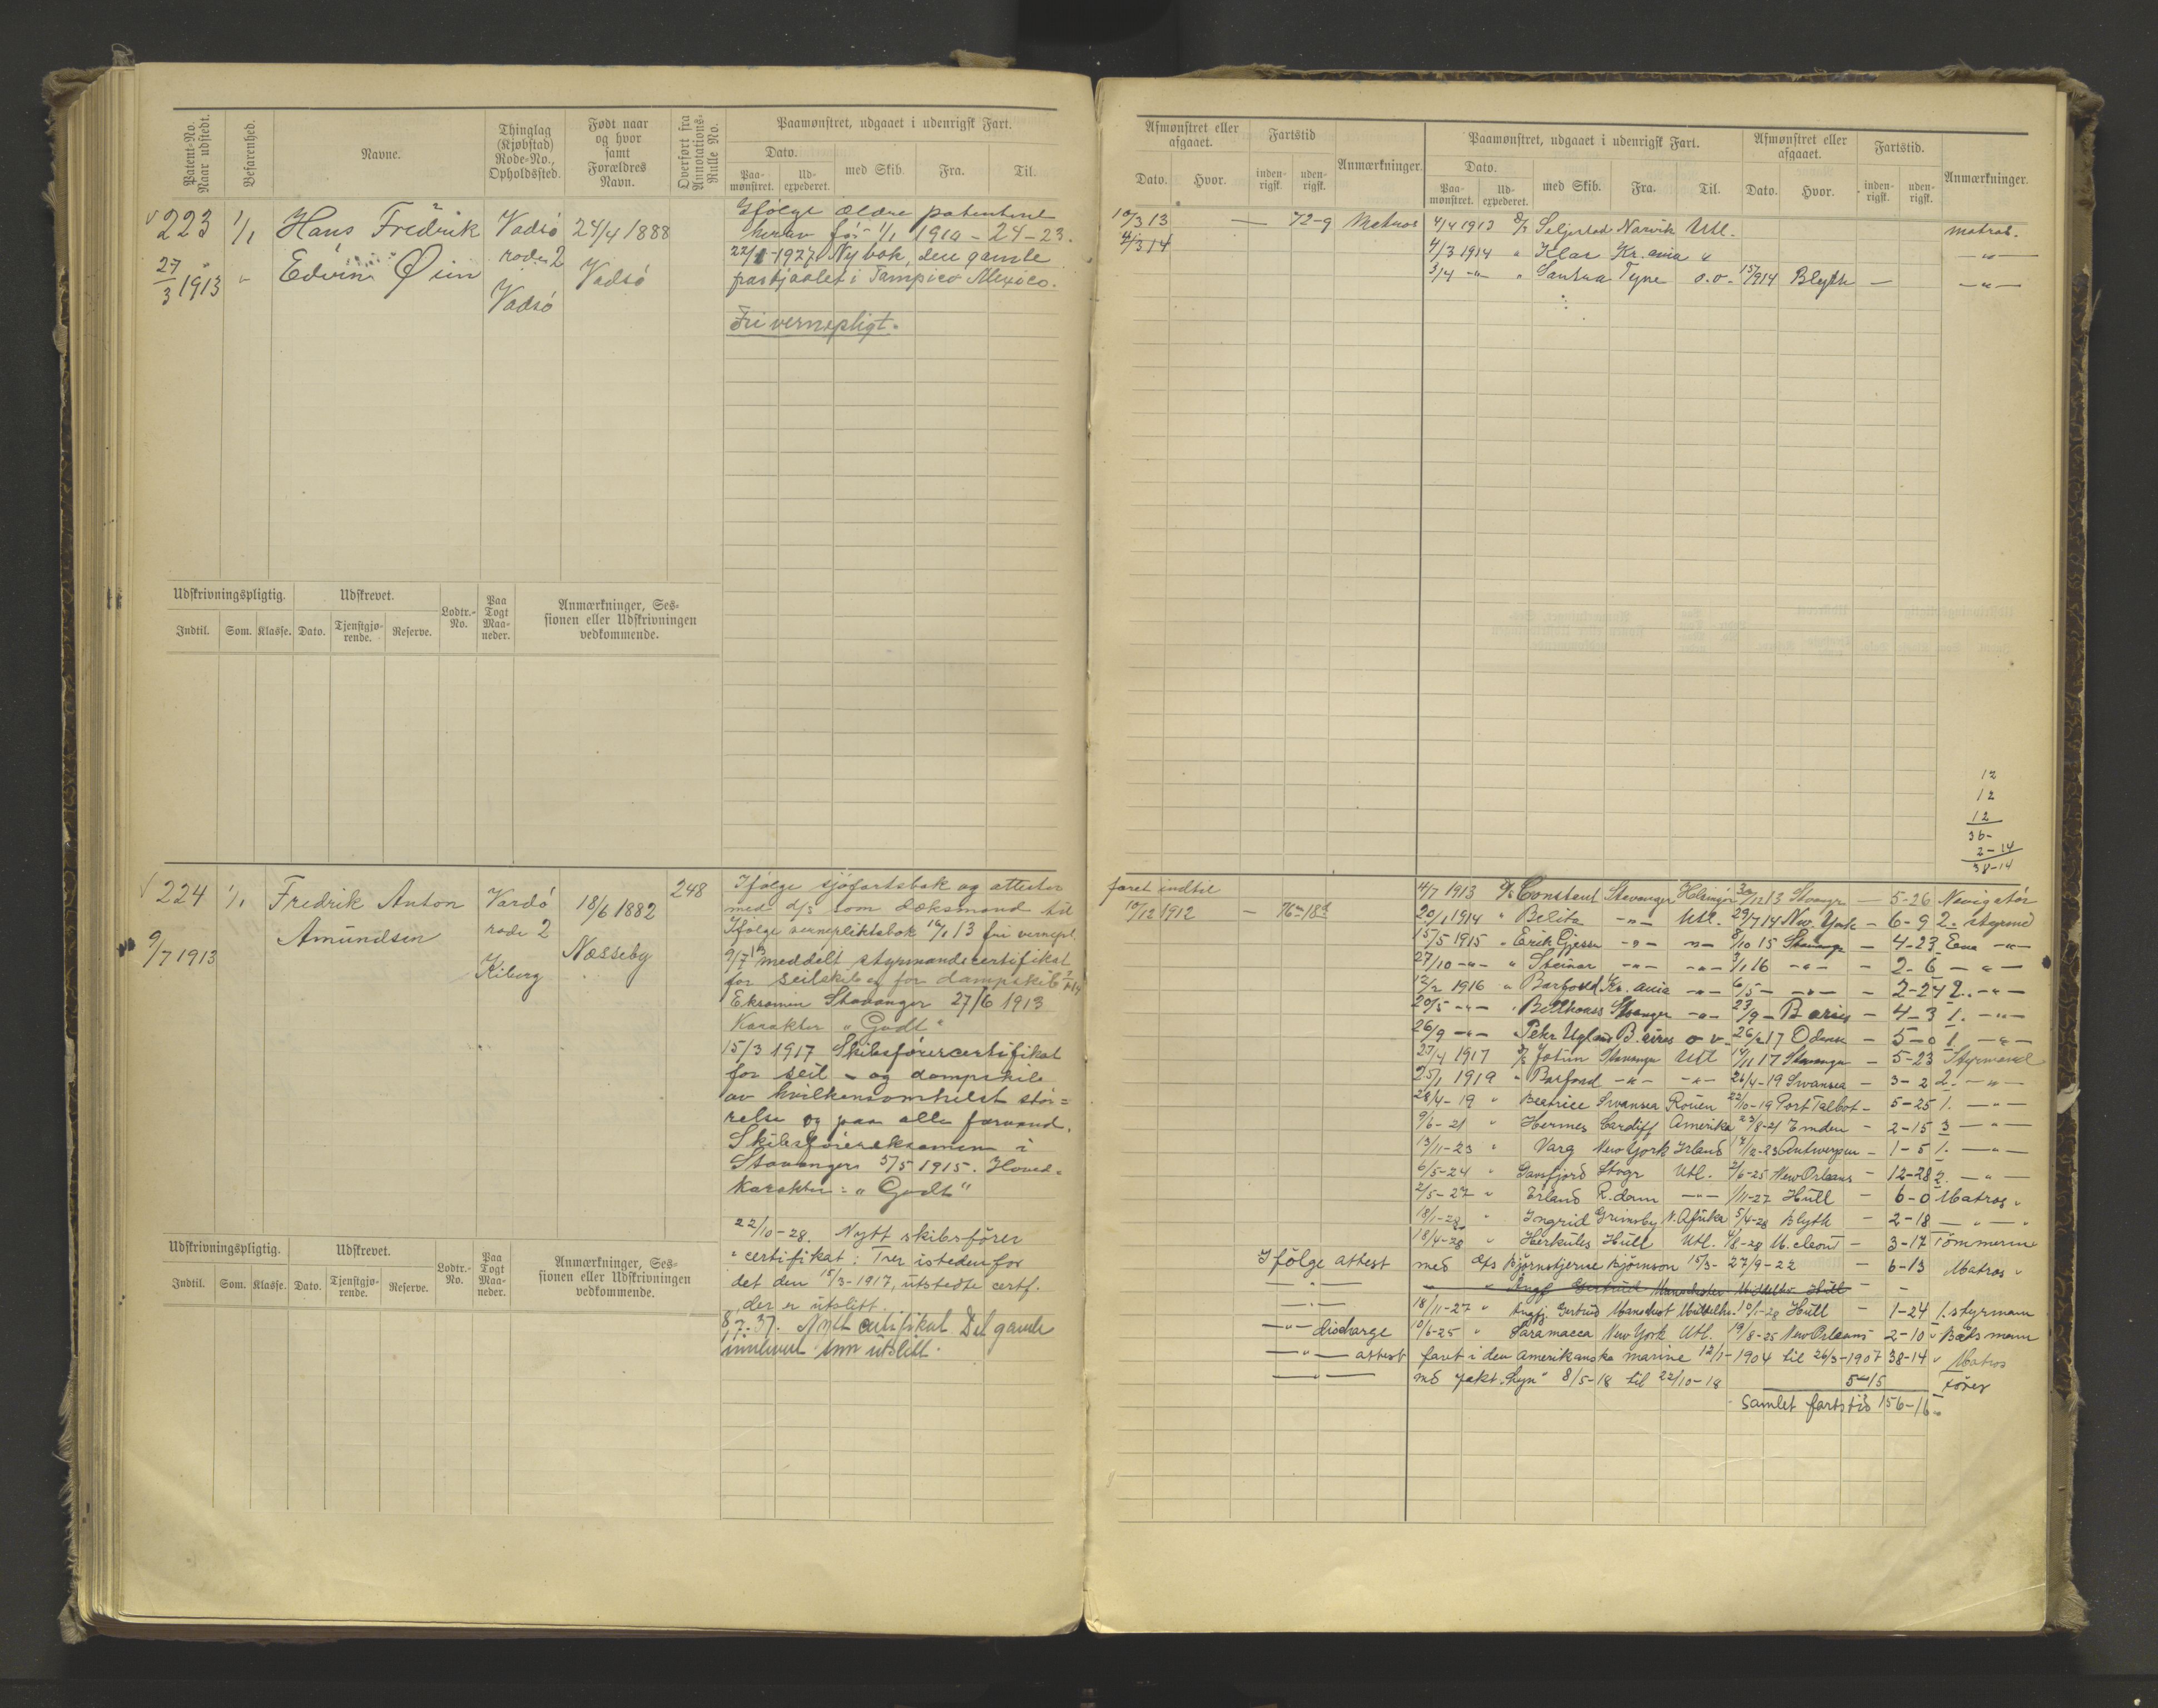 Patent-No. Naar udstedt.
Befarenhed.
Navne.
Thinglag (Kjøbstad) Rode-No., Opholdssted.
Født naar og hvor samt Forældres Navn.
Overført fra Annotations-Rulle No.
Paamønstret, udgaaet i udenrigsk Fart.
Dato.
Paa-mønstret.
Ud-expederet.
med Skib.
Fra.
Til.
223
1/1
Hans Fredrik
Edvin Øien
27/3 1913
Vadsö
rode 2
Vadsö
24/4 1888
Vadsö
Ifölge ældre patentrul
herav før 1/1 1910 - 24-23.
22/1-1927 Ny bok, den gamle
frastjaalet i Tampico Mexico.
Fri vernepligt.
Udskrivningspligtig.
Udskrevet.
Lodtr.-No.
Paa Togt Maa-neder.
Anmærkninger, Ses-sionen eller Udskrivningen vedkommende.
Indtil.
Som.
Klasse.
Dato.
Tjenstgjø-rende.
Reserve.
224
1/1
Fredrik Anton
Amundsen
9/7 1913
Vardö
rode 2
Kiberg
18/6 1882
Næsseby
248
Ifölge sjöfartsbok og attester
med d/s som dæksmand til
Ifölge vernepliktsbok 16/1 13 fri vernepl.
9/7 13 meddelt styrmandscertifikat
for seilskib og for dampskib
Eksamen Stavanger 27/6 1913
Karakter "Godt"
15/3 1917 Skibsförercertifikat
for seil - og dampskib
av hvilkensomhelst stör=
relse og paa alle farvand.
Skibsförereksamen i
Stavanger 5/5 1915. Hoved=
karakter: "Godt"
22/10-28. Nytt skibsförer
certifikat: Trer istedenfor
det den 15/3-1917, utstedte certf.
der er utslitt.
8/7.37. Nytt certifikat Det gamle
innlevert som utslitt.
Udskrivningspligtig.
Udskrevet.
Lodtr.-No.
Paa Togt Maa-neder.
Anmærkninger, Ses-sionen eller Udskrivningen vedkommende.
Indtil.
Som.
Klasse.
Dato.
Tjenstgjø-rende.
Reserve.
Afmønstret eller afgaaet.
Fartstid
Anmærkninger.
Paamønstret, udgaaet i udenrigsk Fart.
Afmønstret eller afgaaet.
Fartstid.
Anmærkninger.
Dato.
Hvor.
inden-rigsk.
uden-rigsk.
Dato.
Paa-mønstret.
Ud-expederet.
med Skib.
Fra.
Til.
Dato.
Hvor.
inden-rigsk.
uden-rigsk.
10/3 13 — 72-9 Matros 4/4 1913 Seljestad Narvik Utl. matros.
4/3 14 4/3 1914 " Klar Kr.ania " —"—
3/4 -"- " Santna Tyne o.v. 15/9 14 Blyth — —"—
12
12
12
36-
2-14
38-14
faret indtil
10/12 1912 — 76m 18d
4/7 1913 Constant Stavanger Helsingör 30/12 13 Stavgr — 5-26 Navigatör
20/1 1914 " Belita -"- Utl. 29/7 14 New York - 6-9 2. styrmd
15/5 1915 " Erik Gjessen -"- -"- 8/10 15 Stavanger - 4-23 Ene -"-
27/10 -"- " Steinar -"- -"- 3/1 16 -"- - 2-6 -"-
12/2 1916 " Barfond Kr.ania -"- 6/5 - -"- - 2-24 2. -"-
20/5 -"- Stavanger -"- 23/9 - B. aires - 4-3 1. -"-
26/9 -"- Peter Ugland B. aires o v. 26/2 17 Odense - 5-0 1 -"-
27/4 1917 Jotun Stavanger Utl 14/11 17 Stavanger - 5-23 Styrmand
25/1 1919 " Barfond -"- -"- 26/4-19 Swansea - 3-2 2. -"-
28/4-19 " Beatrice Swansea Rouen 22/10-19 Port Talbot - 5-25 1. -"-
9/6-21 " Hermes Cardiff Amerika 23/8-21 Emden - 2-15 3 -"-
13/11-23 " Varg New York Irland 17/12-23 Antwerpen - 1-5 1. -"-
6/5-24 " Gansfjord Stvgr Utl. 2/6-25 New Orleans - 12-28 2. -"-
2/5-27 " Erland R.dam -"- 1/11-27 Hull - 6-0 Matros "
18/1-28 " Ingrid Grimsby N. Afrika 5/4-28 Blyth - 2-18 -"-
18/4-28 " Herkules Hull Utl. 4/8-28 - 3-17 Tömmerm
Ifölge attest med Bjørnstjerne Bjørnson 15/3 - 27/9-22 - 6-13 Matros "
-"- Gertrud Manchester Middelhv. Hull
-"- 18/11-27 " Gertrud Manchest Middelhv. 10/1-28 Hull - 1-24 1. styrmann
-"- discharge 10/6-25 " Saramacca New York Utl. 19/8-25 New Orleans 2-10 " Båtsmann
-"- attest faret i den Amerikanske marine 12/1-1904 til 26/3-1907 38-14 " Matros
-"- md jakt "Lyn" 8/5-18 til 22/10-18 5-15 förer
Samlet fartstid 156-16